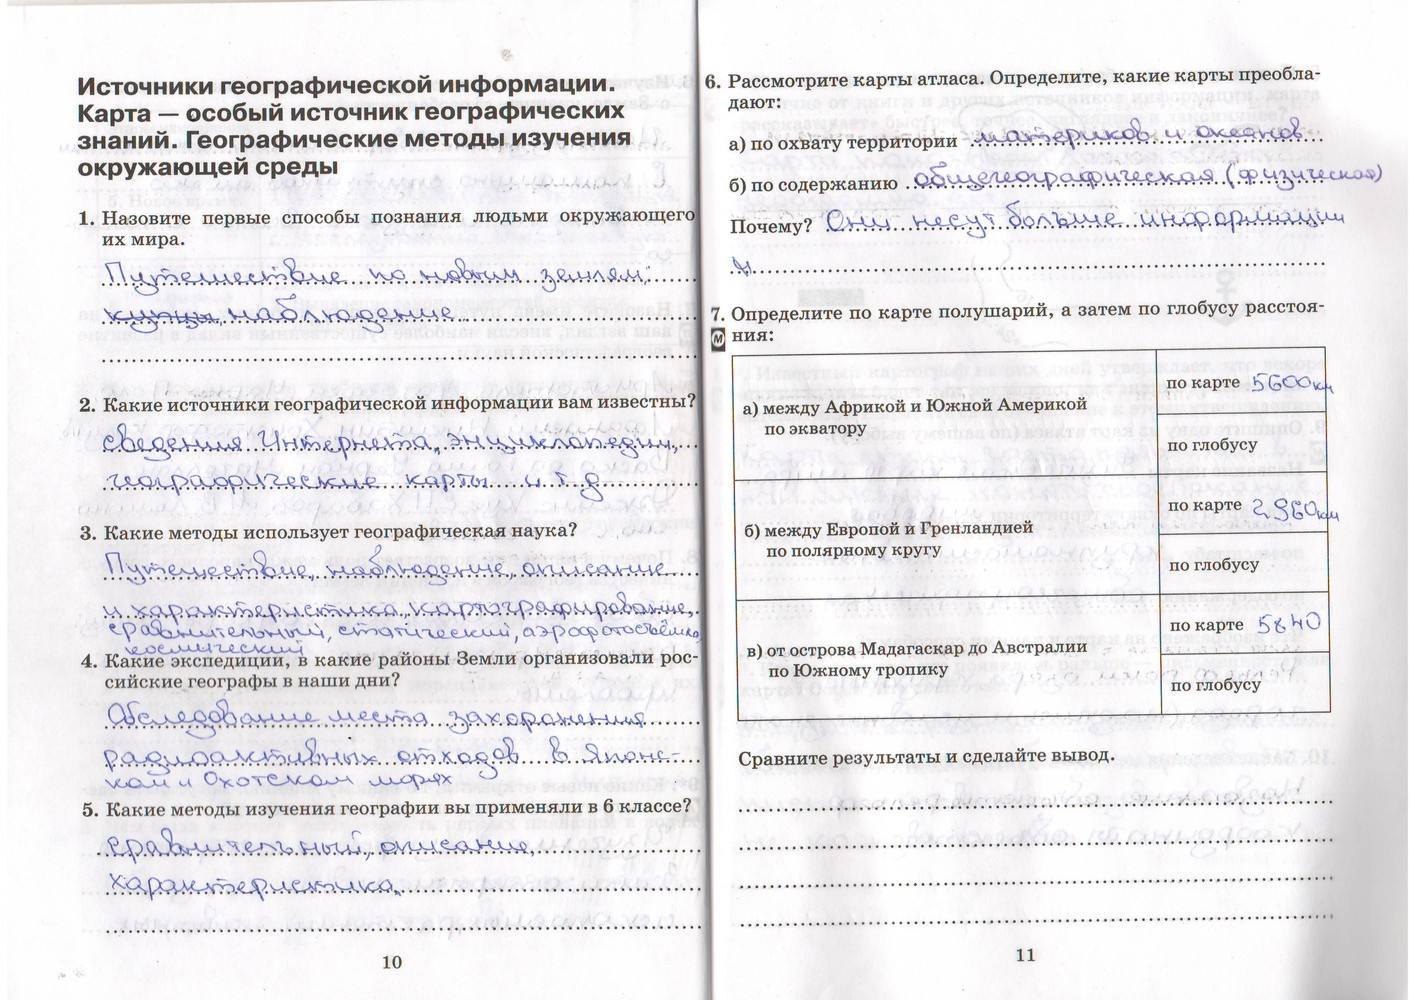 Источники географической информации.
Карта — особый источник географических
знаний. Географические методы изучения
окружающей среды
1. Назовите первые способы познания людьми окружающего
их мира.
Путешествие по новым землям,
наблюдение
2. Какие источники географической информации вам известны?
сведения Интернета, энциклопедии,
географические карты и т.д
3. Какие методы использует географическая наука?
Путешествие, наблюдение, описание
и характеристика, картографирование,
сравнительный, статический, аэрофотосъёмка,
космический
4. Какие экспедиции, в какие районы Земли организовали рос-
сийские географы в наши дни?
Обследование места захоронения
радиоактивных отходов в Японс-
ком и Охотском морях
5. Какие методы изучения географии вы применяли в 6 классе?
сравнительный, описание,
характеристика.
10
6. Рассмотрите карты атласа. Определите, какие карты преобла-
дают:
а) по охвату территории материков и океанов
б) по содержанию общегеографическая (физическая)
Почему? Они несут больше информации
и
7. Определите по карте полушарий, а затем по глобусу расстоя-
М ния:
а) между Африкой и Южной Америкой
по экватору
по карте 5600 км
по глобусу
б) между Европой и Гренландией
по полярному кругу
по карте 2960 км
по глобусу
в) от острова Мадагаскар до Австралии
по Южному тропику
по карте 5840
по глобусу
Сравните результаты и сделайте вывод.
11